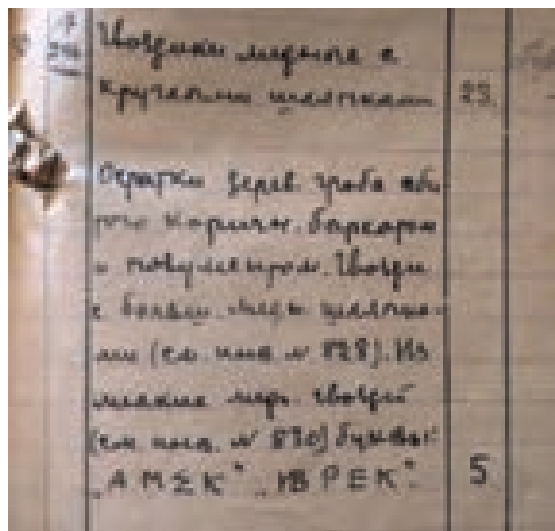 17
Гвоздики медные с
круглыми шляпками 23.
Остатки дерев. гроба оби
того коричн. бархатом
и позументом. Гвозди
с больш. медн. шляпка-
ми (см. инв. № 828). Из
мелких медн. гвоздей
(см. инв. № 830) буквы:
„АМΣК" „IВРЕК". 5